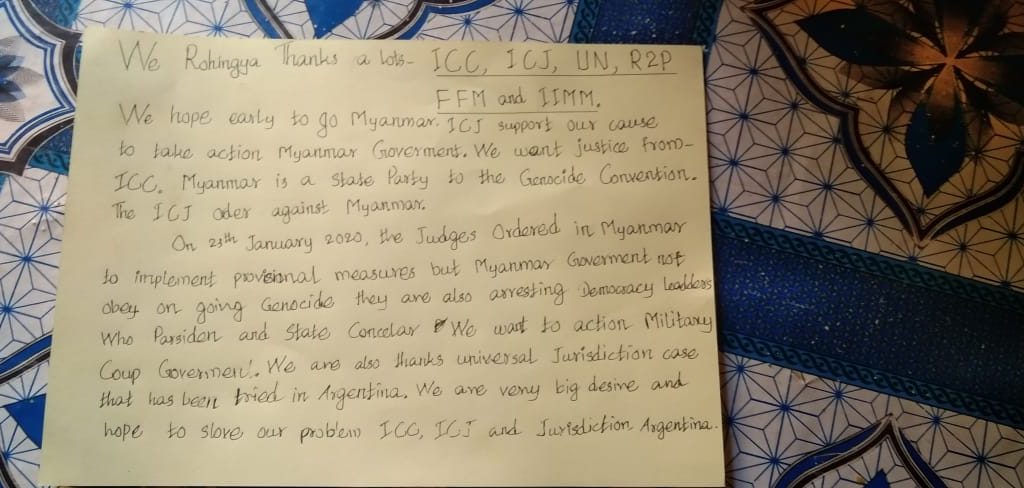 We Rohingya Thanks a lots- ICC, ICJ, UN, R2P
FFM and IIMM.
We hope early to go Myanmar. ICJ support our cause
to take action Myanmar Goverment. We want justice from-
ICC. Myanmar is a State Party to the Genocide Convention.
The ICJ oder against Myanmar.
On 23th January 2020, the Judges Ordered in Myanmar
to implement provisional measures but Myanmar Goverment not
obey on going Genocide they are also arresting Democracy leadders
Who Parsiden and State Concelar We want to action Military
Coup Goverment. We are also thanks universal Jurisdiction case
that has been tried in Argentina. We are very big desire and
hope to slove our problem ICC, ICJ and Jurisdiction Argentina.